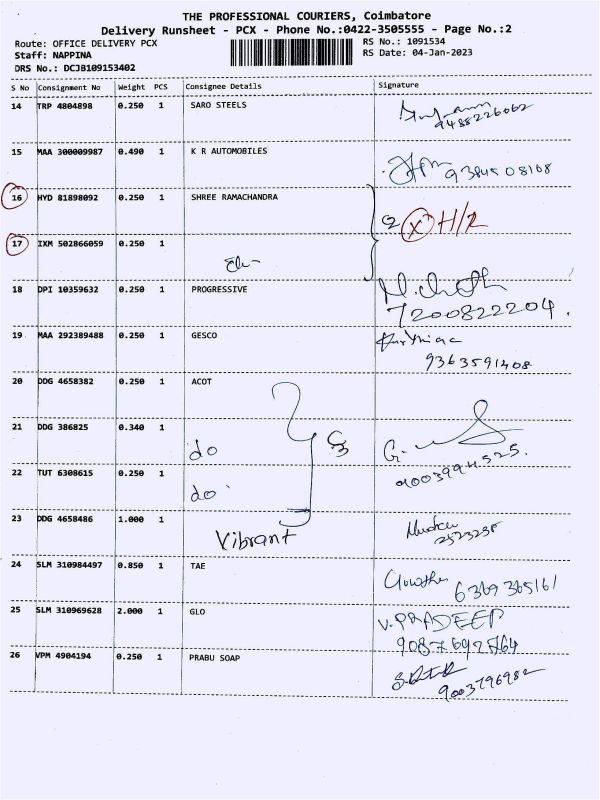 THE PROFESSIONAL COURIERS, Coimbatore
Delivery Runsheet - PCX - Phone No.:0422-3505555 - Page No.:2
Route: OFFICE DELIVERY PCX
RS No.: 1091534
Staff: NAPPINA
RS Date: 04-Jan-2023
DRS No.: DCJB109153402
S No Consignment No Weight PCS Consignee Details Signature
14 TRP 4804898 0.250 1 SARO STEELS
9488226062
15 MAA 300009987 0.490 1 K R AUTOMOBILES
9384508168
16 HYD 81898092 0.250 1 SHREE RAMACHANDRA
2 X H/R
17 IXM 502866059 0.250 1
18 DPI 10359632 0.250 1 PROGRESSIVE
7200822204.
19 MAA 292389488 0.250 1 GESCO
9363591408
20 DDG 4658382 0.250 1 ACOT
21 DDG 386825 0.340 1 do
22 TUT 6308615 0.250 1 do
9003994525.
23 DDG 4658486 1.000 1 Vibrant
2523238
24 SLM 310984497 0.850 1 TAE
6369365161
25 SLM 310969628 2.000 1 GLO V. PRADEEP
9087692764
26 VPM 4904194 0.250 1 PRABU SOAP
9003796982